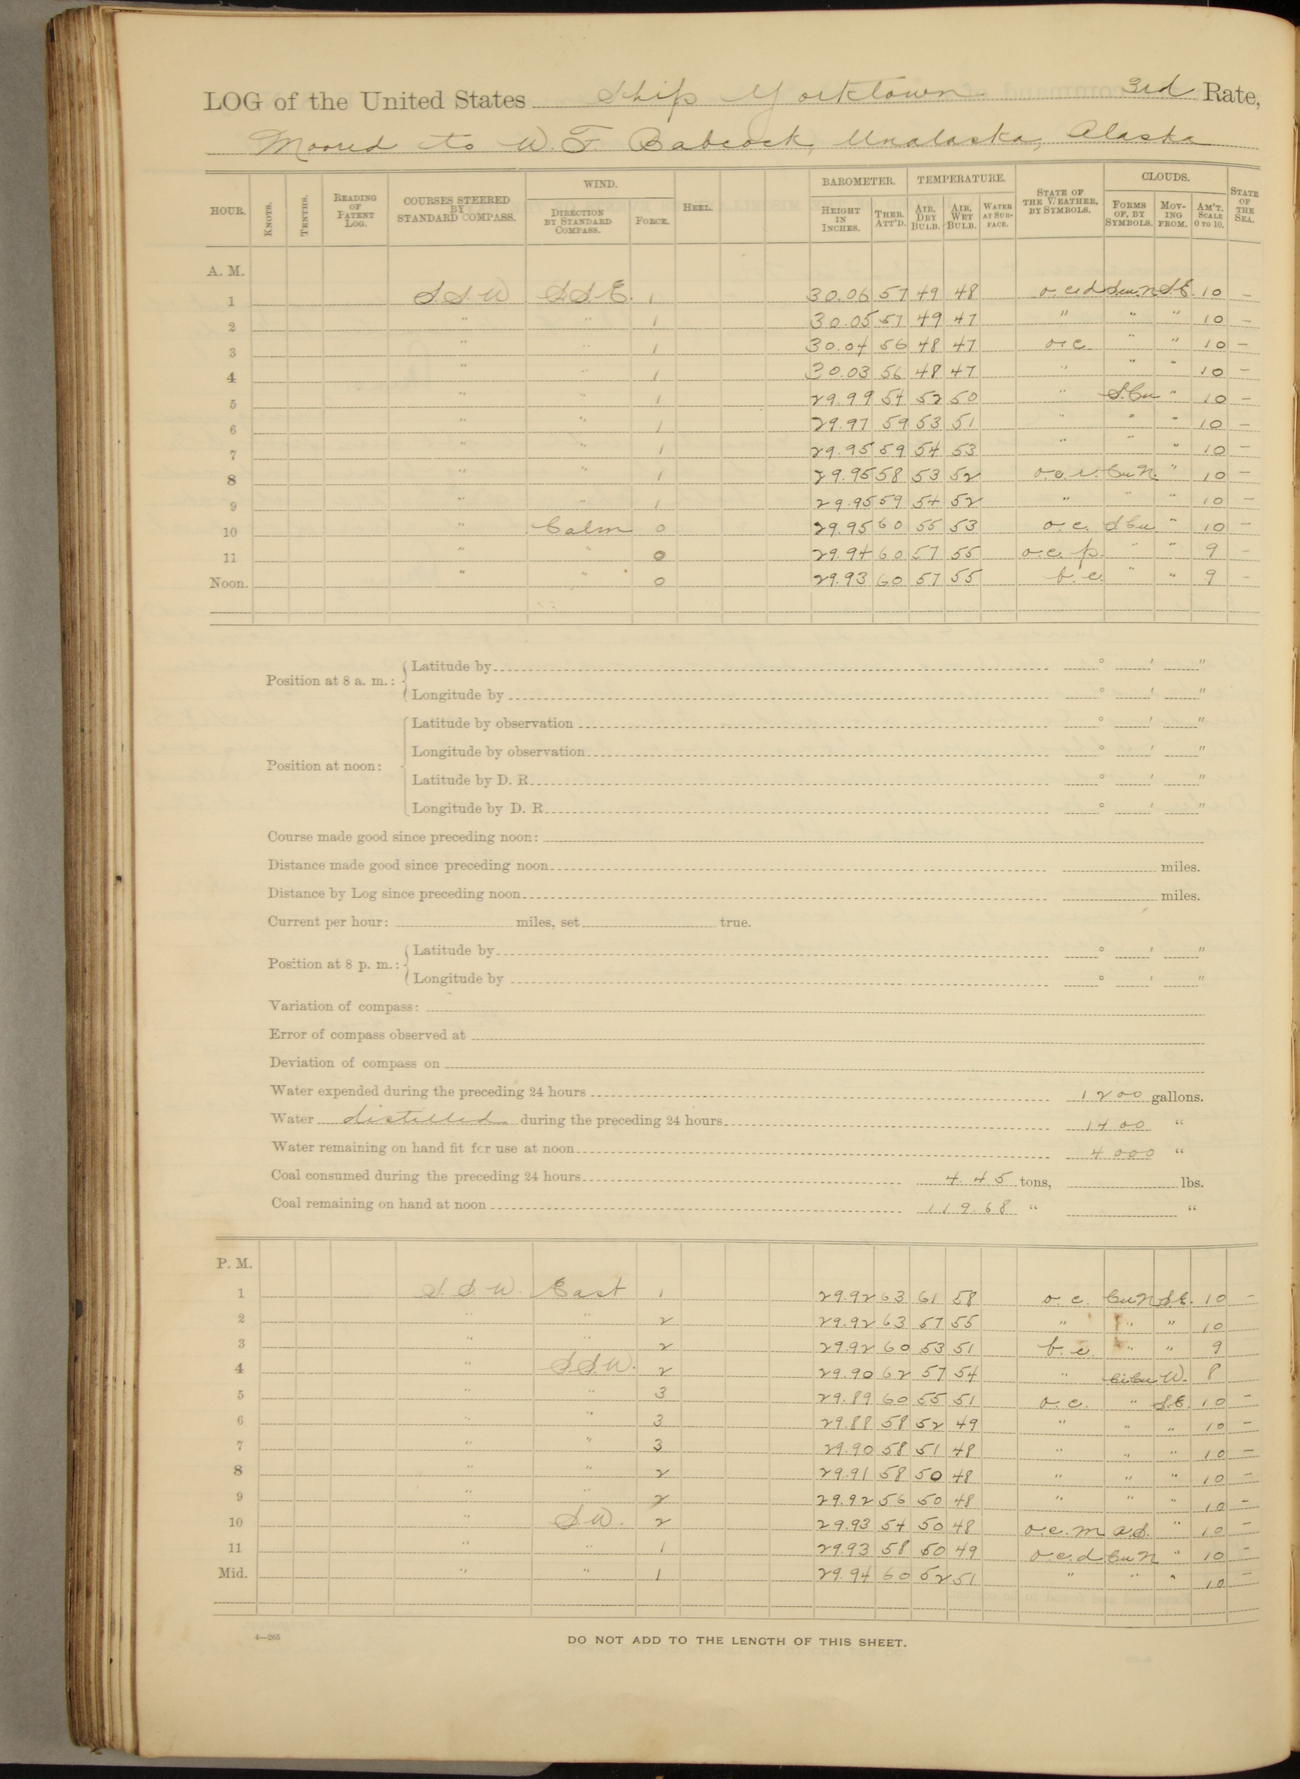 LOG of the United States Ship Yorktown 3rd Rate,
Moored to W. F. Babcock, Unalaska, Alaska
HOUR. KNOTS. TENTHS. READING OF PATENT LOG. COURSES STEERED BY STANDARD COMPASS. WIND. DIRECTION BY STANDARD COMPASS. FORCE. HEEL. BAROMETER. HEIGHT IN INCHES. THER. ATT'D. TEMPERATURE. AIR, DRY BULB. AIR, WET BULB. WATER AT SURFACE. STATE OF THE WEATHER, BY SYMBOLS. CLOUDS. FORMS OF, BY SYMBOLS. MOVING FROM. AM'T. SCALE 0 TO 10. STATE OF THE SEA.
A. M.
1 S.S.W S.S.E. 1 30.06 57 49 48 o.c.d S.E. 10 -
2 " " 1 30.05 57 49 47 " " " 10 -
3 " " 1 30.04 56 48 47 o.c " " 10 -
4 " " 1 30.03 56 48 47 " " " 10 -
5 " " 1 29.99 54 52 50 " S.Cu " 10 -
6 " " 1 29.97 59 53 51 " " " 10 -
7 " " 1 29.95 59 54 53 " " " 10 -
8 " " 1 29.95 58 53 52 o.c.r. Cu N. " 10 -
9 " " 1 29.95 59 54 52 " " " 10 -
10 " Calm 0 29.95 60 55 53 o.c. S Cu " 10 -
11 " " 0 29.94 60 57 55 o.c. p. " " 9 -
Noon. " " 0 29.93 60 57 55 b.c. " " 9 -
Position at 8 a. m.: Latitude by ° ' "
Longitude by ° ' "
Position at noon: Latitude by observation ° ' "
Longitude by observation ° ' "
Latitude by D. R. ° ' "
Longitude by D. R. ° ' "
Course made good since preceding noon:
Distance made good since preceding noon miles.
Distance by Log since preceding noon miles.
Current per hour: miles, set true.
Position at 8 p. m.: Latitude by ° ' "
Longitude by ° ' "
Variation of compass:
Error of compass observed at
Deviation of compass on
Water expended during the preceding 24 hours 1200 gallons.
Water distilled during the preceding 24 hours 1400 "
Water remaining on hand fit for use at noon 4000 "
Coal consumed during the preceding 24 hours 4.45 tons, lbs.
Coal remaining on hand at noon 119.68 " "
P. M.
1 S.S.W. East 1 29.92 63 61 58 o.c. Cu N S.E. 10 -
2 " " 2 29.92 63 57 55 " " " 10
3 " " 2 29.92 60 53 51 b.c. " " 9
4 " S.S.W. 2 29.90 62 57 54 " Ci Cu W. 8
5 " " 3 29.89 60 55 51 o.c. " S.E. 10 -
6 " " 3 29.88 58 52 49 " " " 10 -
7 " " 3 29.90 58 51 48 " " " 10 -
8 " " 2 29.91 58 50 48 " " " 10 -
9 " " 2 29.92 56 50 48 " " " 10 -
10 " S.W. 2 29.93 54 50 48 o.c.m " 10 -
11 " " 1 29.93 58 50 49 o.c.d Cu N " 10 -
Mid. " " 1 29.94 60 52 51 " " " 10 -
4—265
DO NOT ADD TO THE LENGTH OF THIS SHEET.